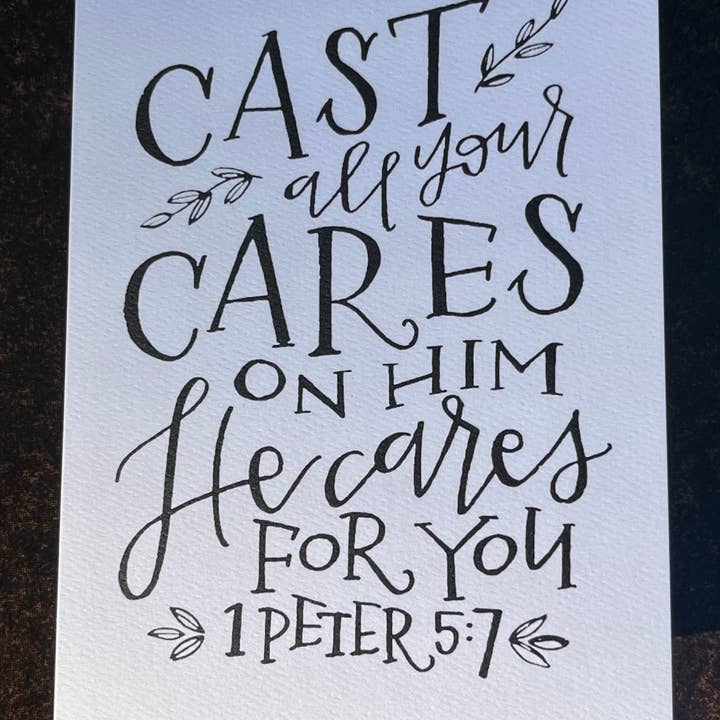 CAST
all your
CARES
ON HIM
He cares
FOR YOU
1 PETER 5:7